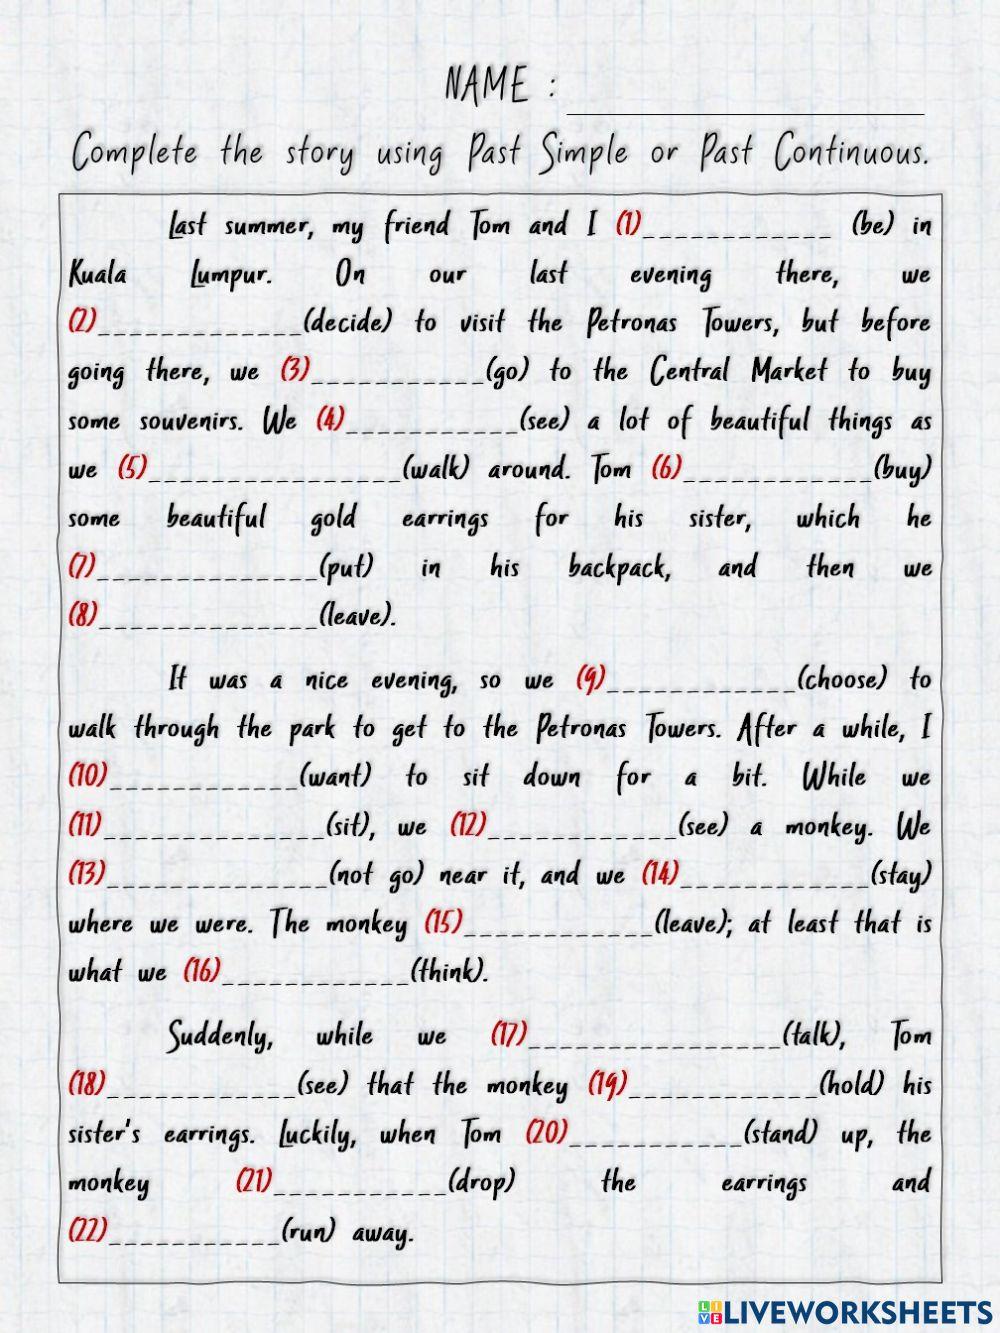 NAME : ____________________
Complete the story using Past Simple or Past Continuous.
Last summer, my friend Tom and I (1)_____________ (be) in
Kuala Lumpur. On our last evening there, we
(2)______________(decide) to visit the Petronas Towers, but before
going there, we (3)____________(go) to the Central Market to buy
some souvenirs. We (4)____________(see) a lot of beautiful things as
we (5)_________________(walk) around. Tom (6)_____________(buy)
some beautiful gold earrings for his sister, which he
(7)_______________(put) in his backpack, and then we
(8)_______________(leave).
It was a nice evening, so we (9)_____________(choose) to
walk through the park to get to the Petronas Towers. After a while, I
(10)_____________(want) to sit down for a bit. While we
(11)_______________(sit), we (12)_____________(see) a monkey. We
(13)_______________(not go) near it, and we (14)_____________(stay)
where we were. The monkey (15)_____________(leave); at least that is
what we (16)_____________(think).
Suddenly, while we (17)_________________(talk), Tom
(18)_____________(see) that the monkey (19)_____________(hold) his
sister's earrings. Luckily, when Tom (20)____________(stand) up, the
monkey (21)____________(drop) the earrings and
(22)____________(run) away.
LIVE LIVEWORKSHEETS